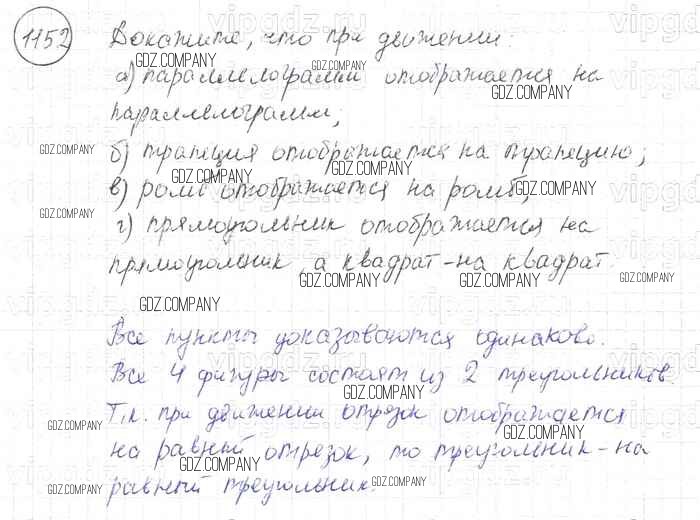 1152 Докажите, что при движении:
а) параллелограмм отображается на
параллелограмм;
б) трапеция отображается на трапецию;
в) ромб отображается на ромб;
г) прямоугольник отображается на
прямоугольник, а квадрат - на квадрат.
Все пункты доказываются одинаково.
Все 4 фигуры состоят из 2 треугольников.
Т.к. при движении отрезок отображается
на равный отрезок, то треугольник - на
равный треугольник.